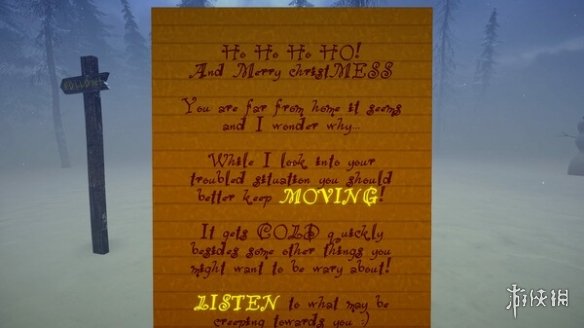 Ho Ho Ho HO!
And Merry christMESS
You are far from home it seems
and I wonder why...
While I look into your
troubled situation you should
better keep MOVING!
It gets COLD quickly
besides some other things you
might want to be wary about!
LISTEN to what may be
creeping towards you :)
游侠网